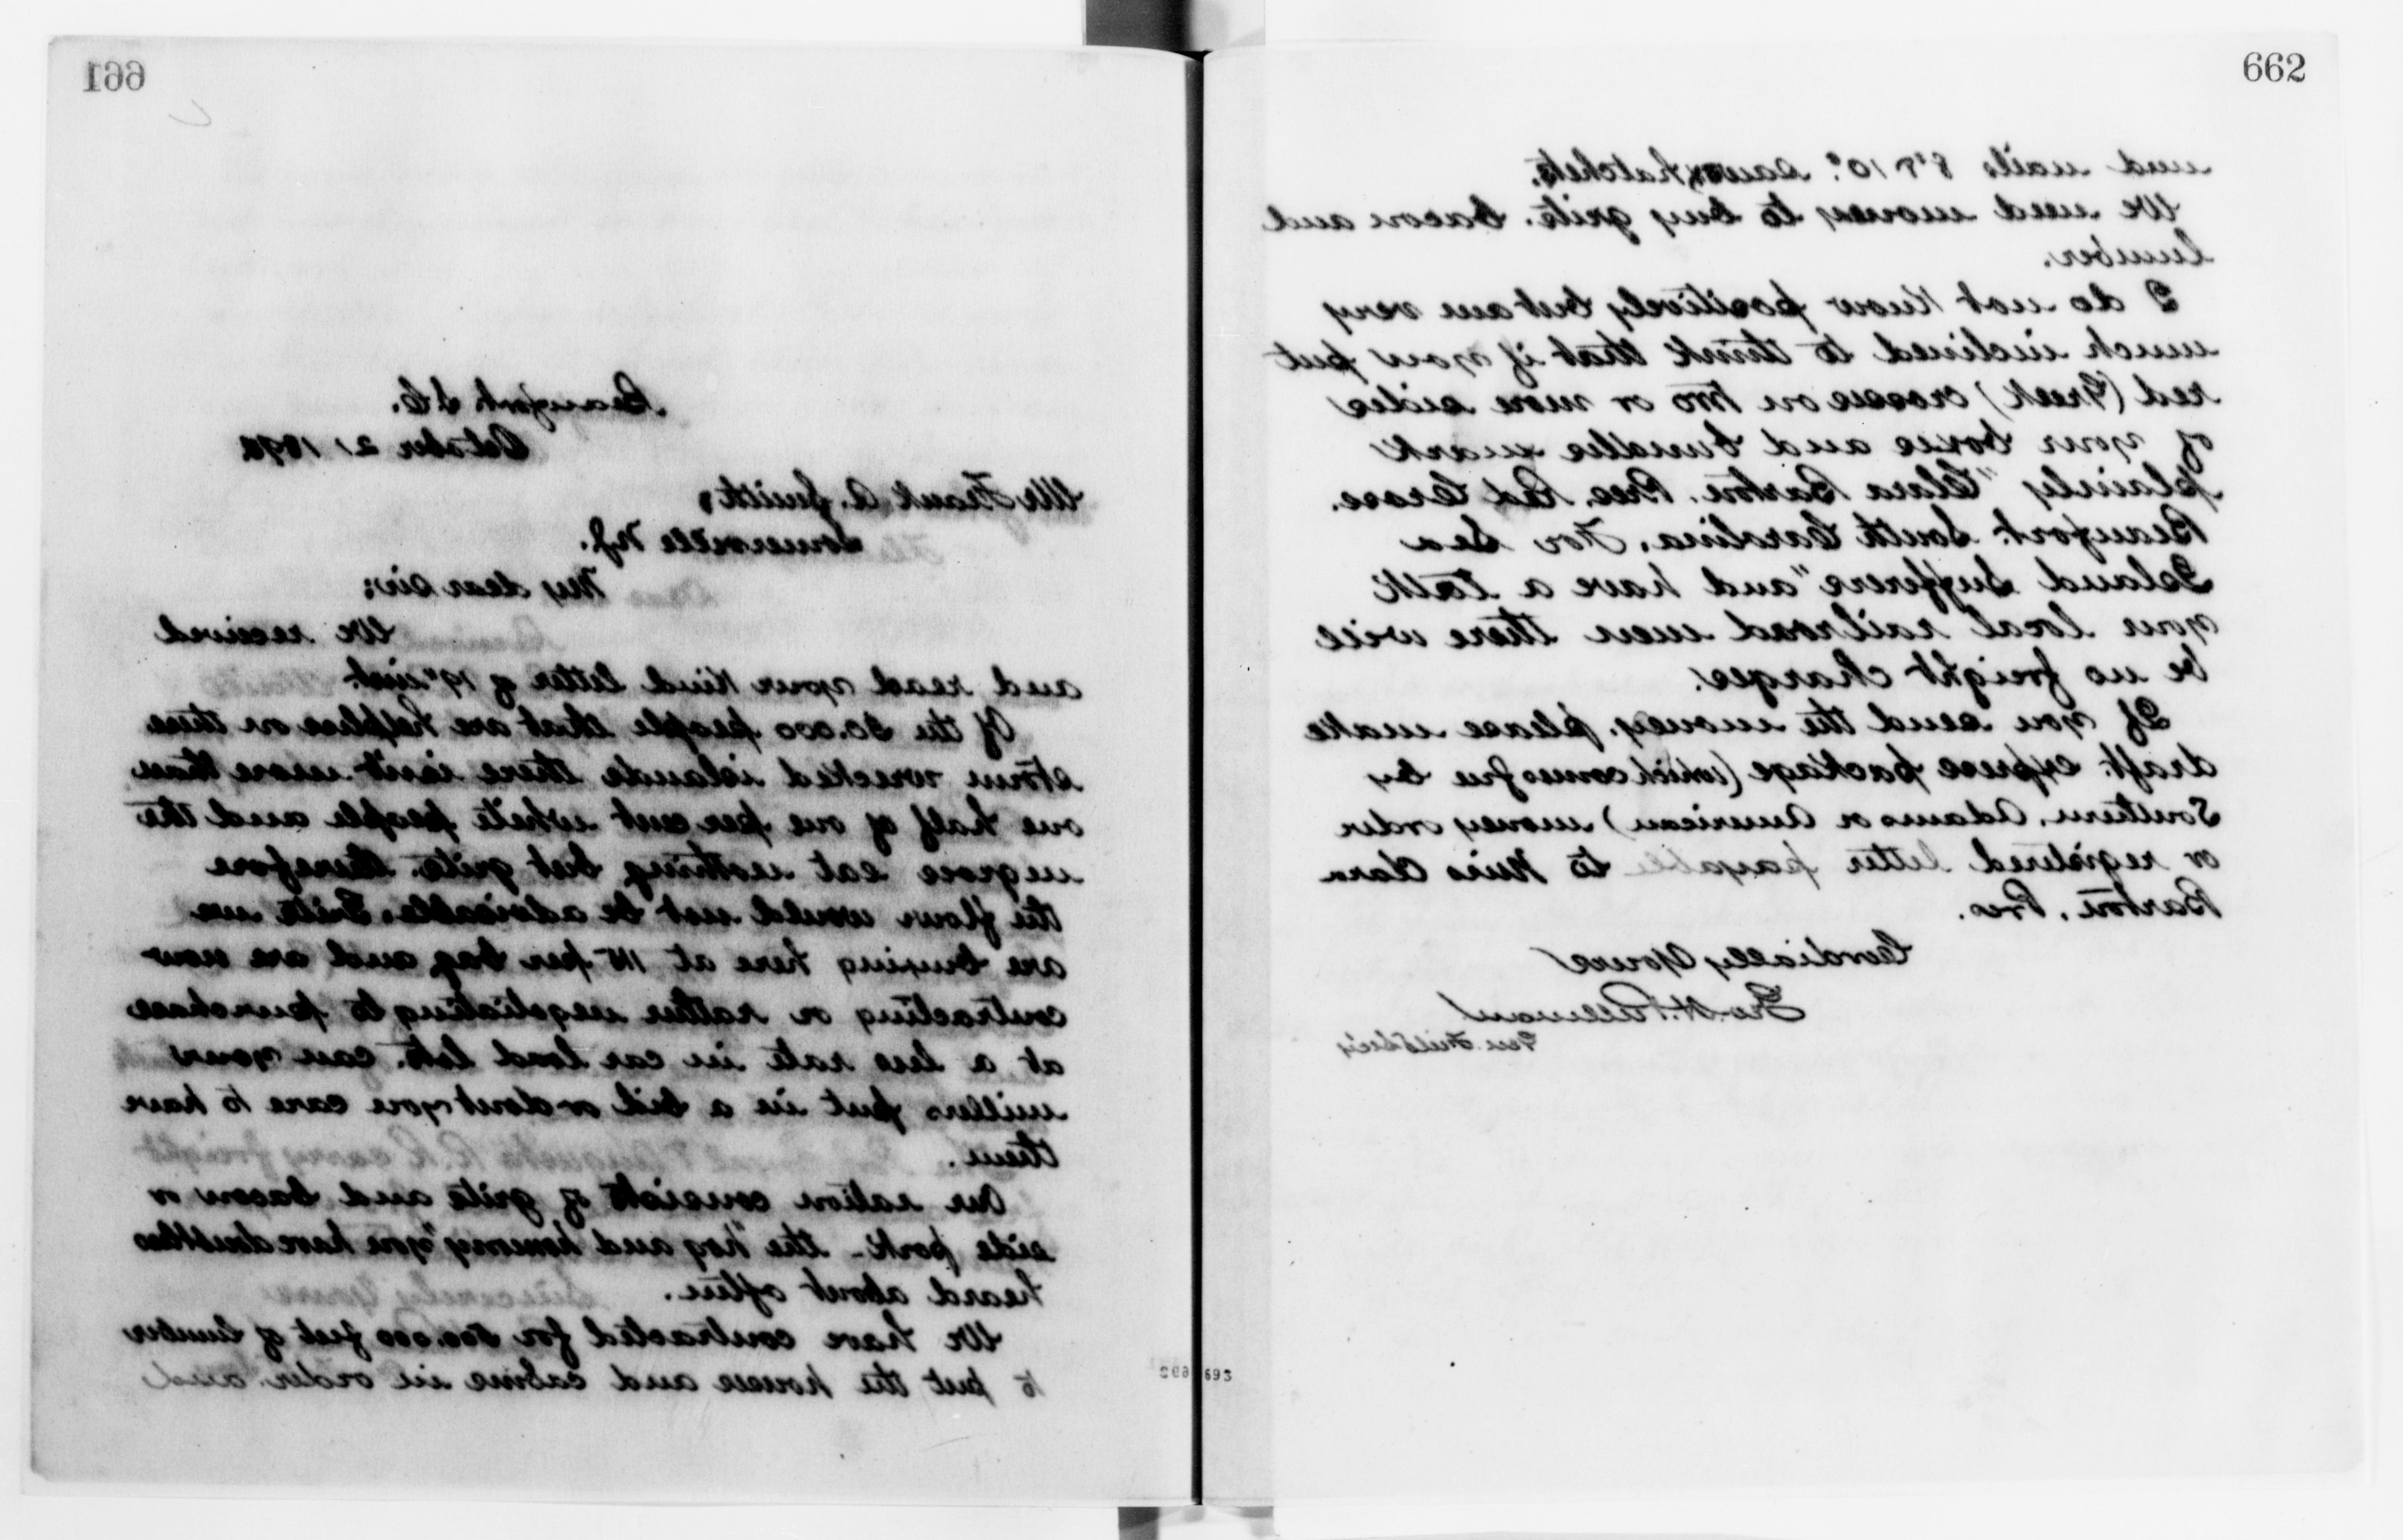 661
Beaufort. S.C.
October 21 189
Mr Frank A. Smith,
Somerville N.J.
My dear Sir:
We received
and read your kind letter of 19" inst.
Of the 30.000 people that are helpless on these
storm wrecked islands there isn't more than
one half of one per cent white people and the
negroes eat nothing but grits. therefore
the flour would not be advisable. Grits we
are buying here at per bag and are now
contracting or rather negotiating to purchase
at a less rate in car load lots. can your
millers put in a bid or don't you care to have
them.
Our ration consists of grits and bacon or
side pork - the "hog and hominy" you have doubtless
heard about often.
We have contracted for 500.000 feet of lumber
to put the houses and cabins in order and
662
need nails 8's & 10s. saws & hatchets.
We need money to buy grits. bacon and
lumber.
I do not know positively but am very
much inclined to think that if you put
red (Greek) crosses on two or more sides
of your boxes and bundles mark
plainly "Clara Barton. Pres. Red Cross.
Beaufort. South Carolina. For Sea
Island Sufferers" and have a talk
your local railroad men there will
be no freight charges.
If you send the money. please make
draft. express package (which comes free by
Southern. Adams or American) money order
or registered letter payable to Miss Clara
Barton. Pres.
Cordially Yours
Geo. H. Pullman
Gen. Field Sec'y
693